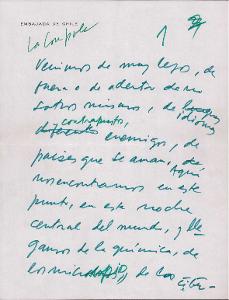 EMBAJADA DE CHILE
1
La Comida
Venimos de muy lejos, de
fuera o de adentro de no
sotros mismos, de idiomas
contrapuestos,
enemigos, de
países que se aman, Aquí
nos encontramos en este
punto, en esta noche
central del mundo, y lle
gamos de la química, de
los microscopios, de la